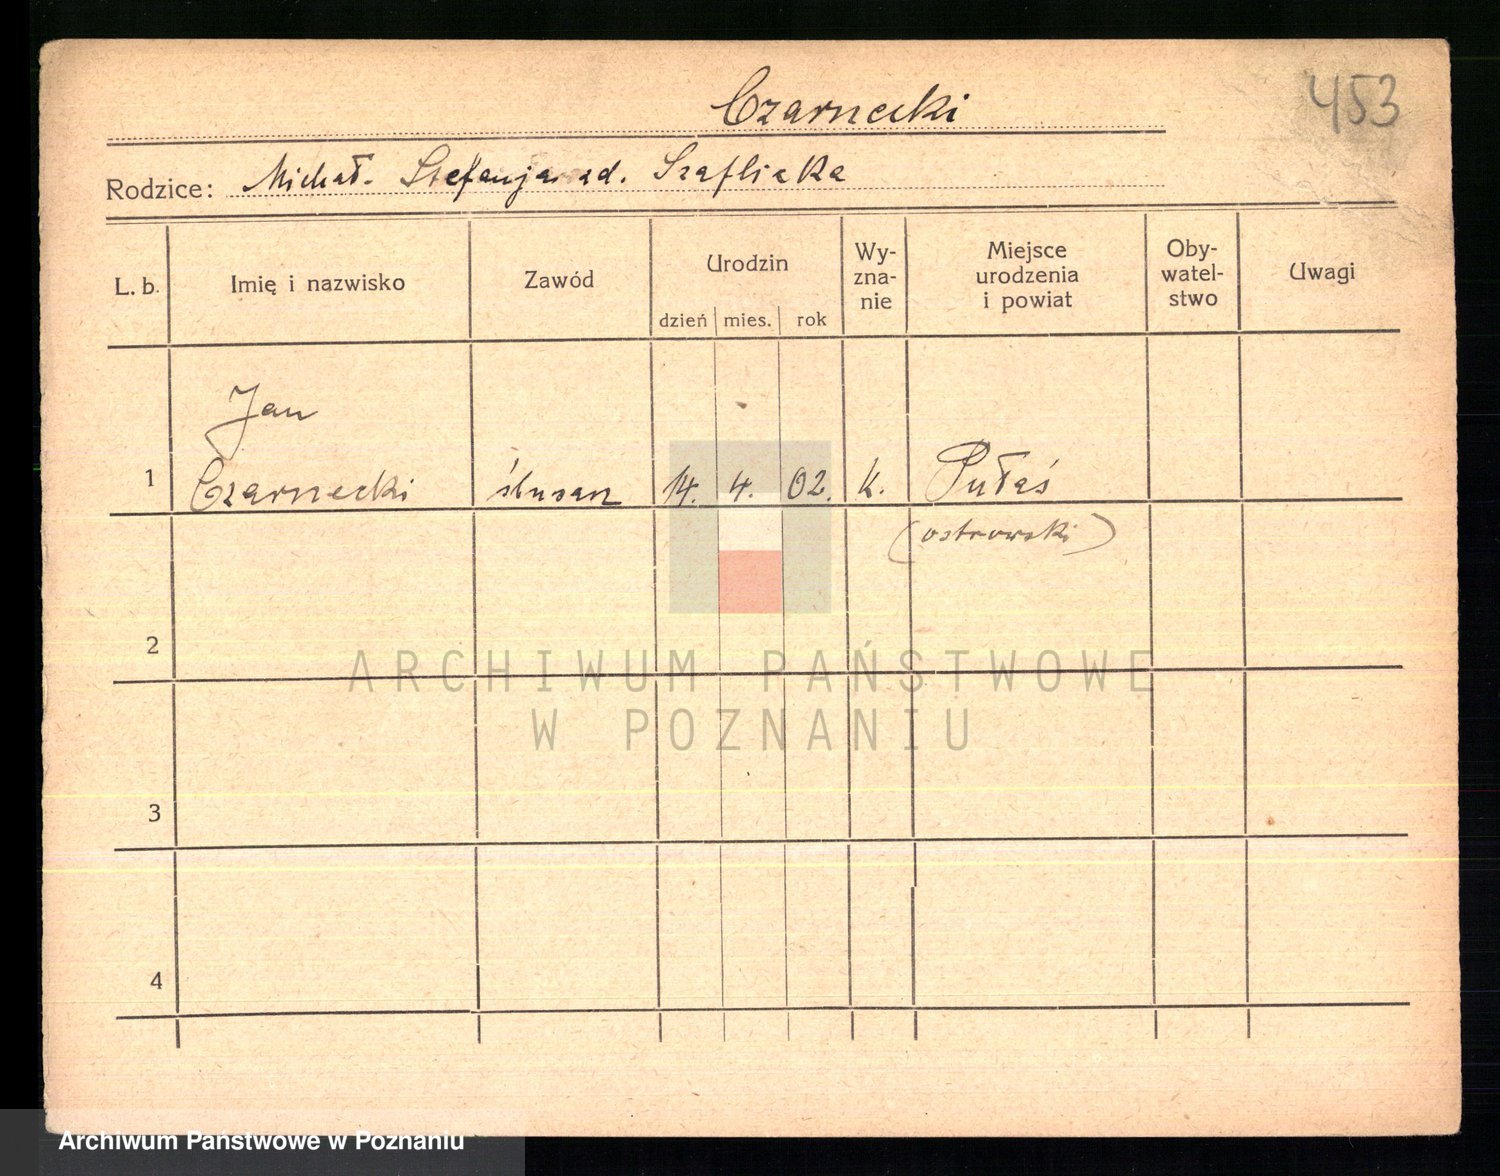 Czarnecki
453
Rodzice: Michał. Stefanja ad. Szaflicka
L. b.
Imię i nazwisko
Zawód
Urodzin
dzień mies. rok
Wy-
zna-
nie
Miejsce
urodzenia
i powiat
Oby-
watel-
stwo
Uwagi
Jan
1 Czarnecki ślusarz 14. 4. 02. k. Pułaś
(ostrowski)
2
ARCHIWUM PAŃSTWOWE
W POZNANIU
3
4
Archiwum Państwowe w Poznaniu